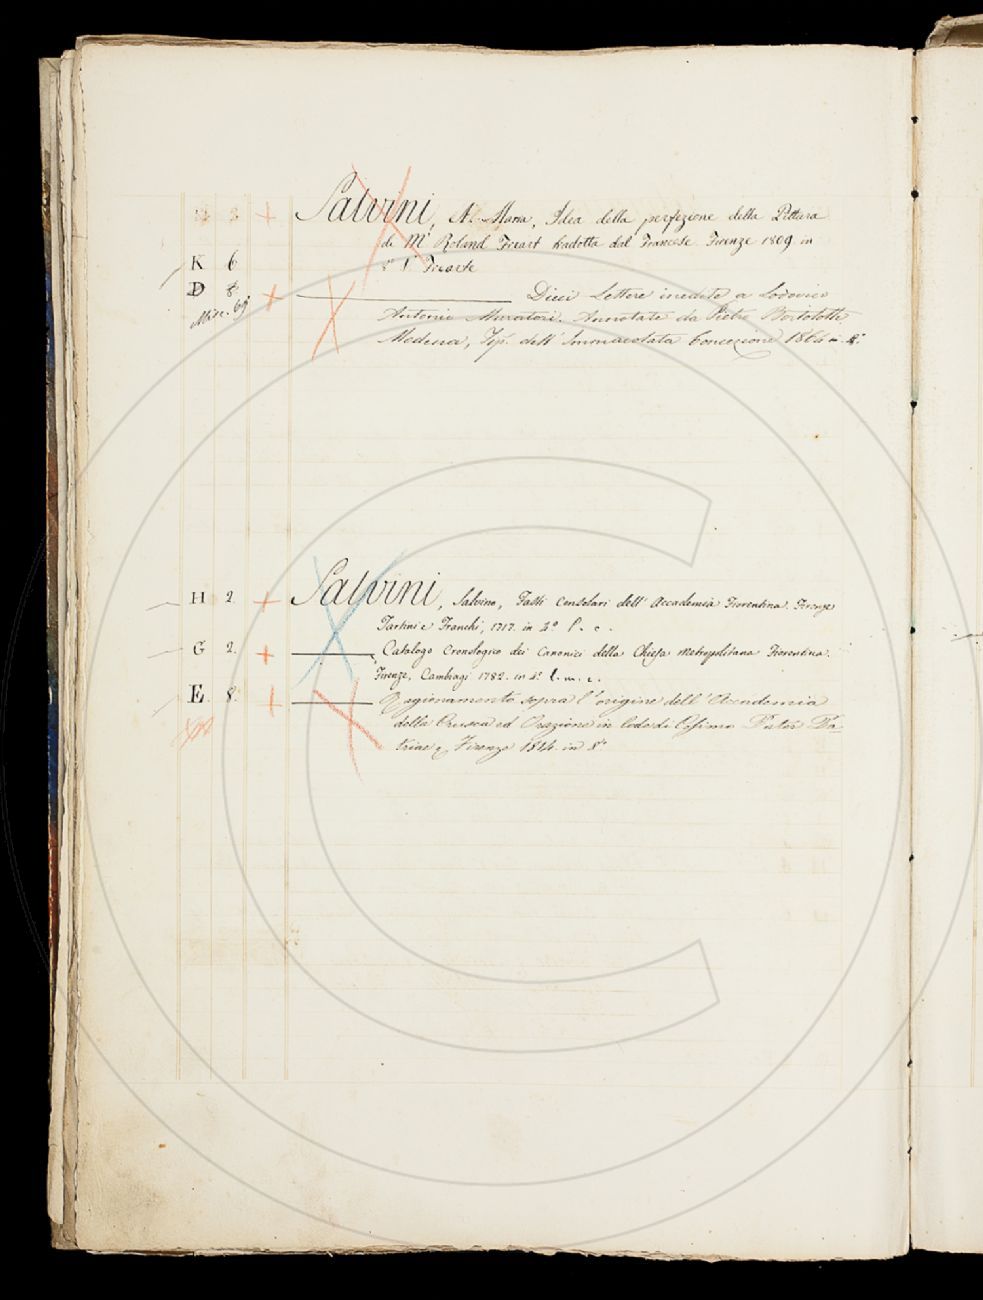 + Salvini, A. Maria, Idea della perfezione della Pittura
di Mr Roland Freart tradotta dal Francese Firenze 1809 in
K 6 8° V. Freart
D 8 + ——— Dieci Lettere inedite a Lodovico
Misc. 69 Antonio Muratori. Annotate da Pietro Bortolotti
Modena, Tip. dell'Immacolata Concezione 1864 in 8°.
H 2 + Salvini, Salvino, Fasti Consolari dell'Accademia Fiorentina. Firenze
Tartini e Franchi, 1717. in 4° l. c.
G 2. + ——— Catalogo Cronologico dei Canonici della Chiesa Metropolitana Fiorentina.
Firenze, Cambiagi 1782. in 4° l. m. c.
E 8 + ——— Ragionamento sopra l'origine dell'Accademia
della Crusca ed Orazione in lode di Cosimo Pater Pa-
triae, Firenze 1814. in 8°